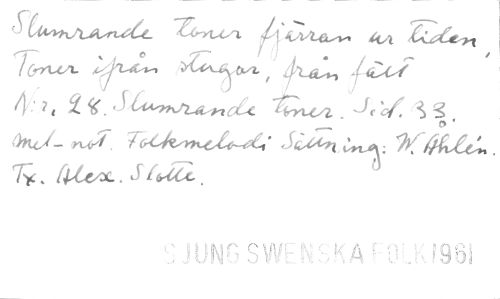 Slumrande toner fjärran ur tiden,
Toner ifrån stugor, från fält
N:r. 28. Slumrande toner. Sid. 33.
mel-not. Folkmelodi Sättning: W. Åhlén.
Tx. Alex. Slotte.
SJUNG SWENSKA FOLK 1961